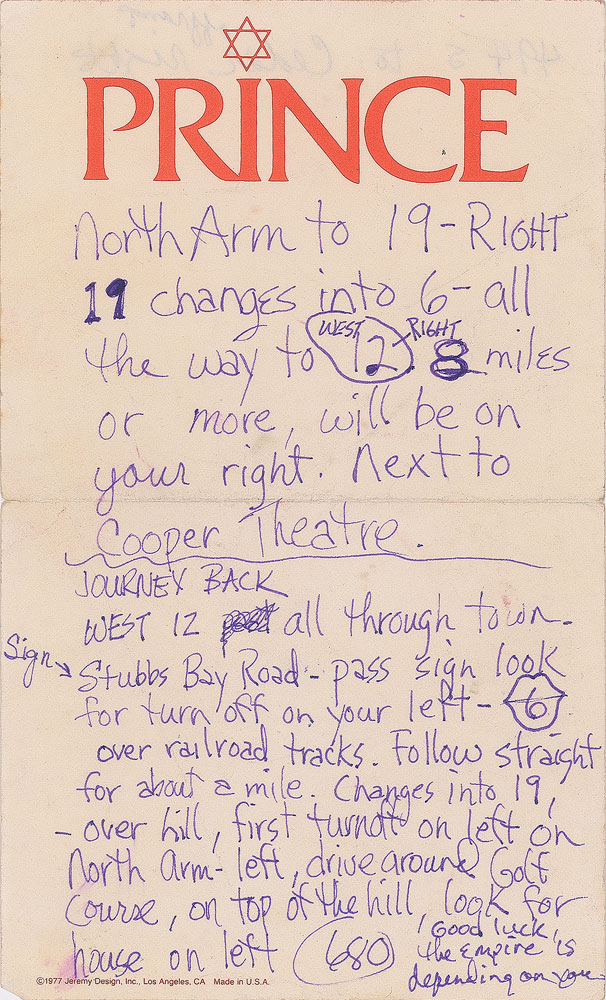 PRINCE
North Arm to 19-RIGHT
19 changes into 6- all
WEST RIGHT
the way to 12. 8 miles
or more, will be on
your right. Next to
Cooper Theatre.
JOURNEY BACK
WEST 12 all through town.
Sign
Stubbs Bay Road - pass sign look
for turn off on your left - 6
over railroad tracks. Follow straight
for about a mile. Changes into 19,
- over hill, first turnoff on left on
North Arm- left, drive around Golf
Course, on top of the hill, look for
house on left 680
Good luck,
the Empire is
depending on you.
©1977 Jeremy Design, Inc., Los Angeles, CA Made in U.S.A.